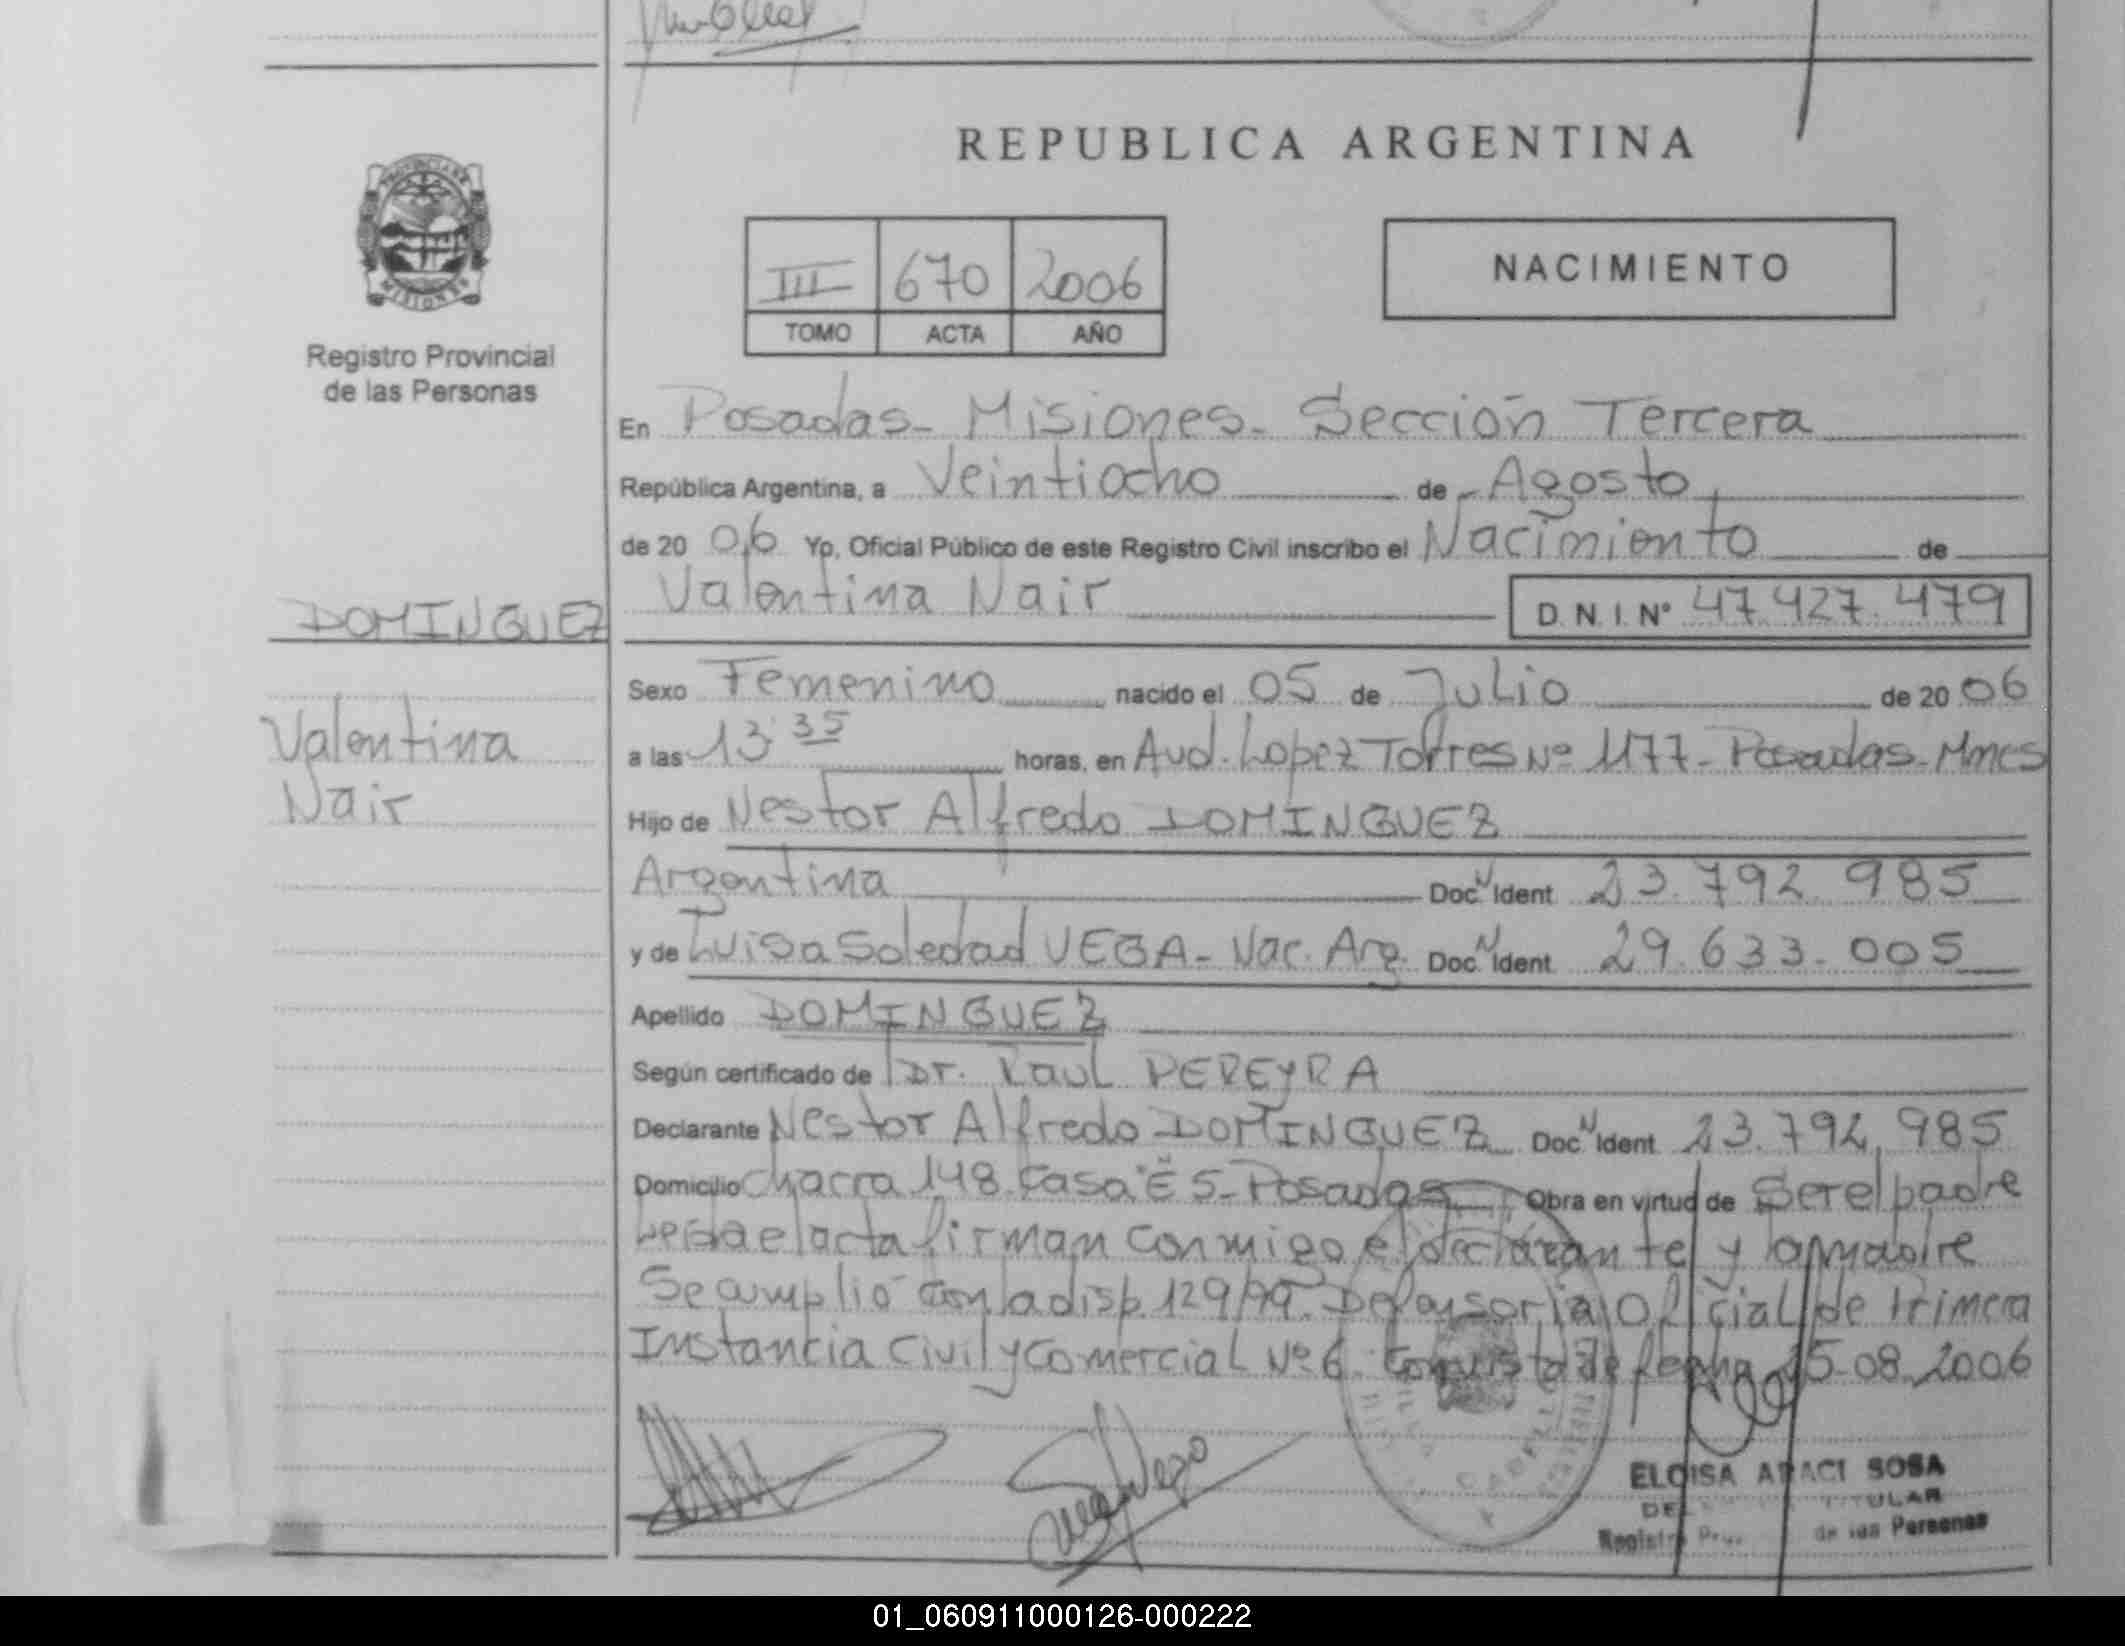 REPUBLICA ARGENTINA
PROVINCIA DE MISIONES
Registro Provincial
de las Personas
III 670 2006
TOMO ACTA AÑO
NACIMIENTO
En Posadas - Misiones - Sección Tercera
República Argentina, a Veintiocho de Agosto
de 20 06 Yo, Oficial Público de este Registro Civil inscribo el Nacimiento de
Valentina Nair D. N. I. Nº 47.427.479
DOMINGUEZ
Valentina
Nair
Sexo Femenino nacido el 05 de Julio de 20 06
a las 13:35 horas, en Avd. Lopez Torres Nº 1177 - Posadas - Mnes
Hijo de Nestor Alfredo DOMINGUEZ
Argentina Doc. N Ident 23.792.985
y de Luisa Soledad VEGA - Nac. Arg. Doc. N Ident 29.633.005
Apellido DOMINGUEZ
Según certificado de Dr. Raul PEREYRA
Declarante Nestor Alfredo DOMINGUEZ Doc. N Ident 23.792.985
Domicilio Chacra 148 Casa "E 5 - Posadas Obra en virtud de Ser el padre
Leida el acta firman conmigo el declarante y la madre
Se cumplió con la disp. 129/99. Defensoria Oficial de Primera
Instancia Civil y Comercial Nº 6. Con vista de fecha 25-08-2006
ELOISA ARACI SOSA
TITULAR
de las Personas
01_060911000126-000222